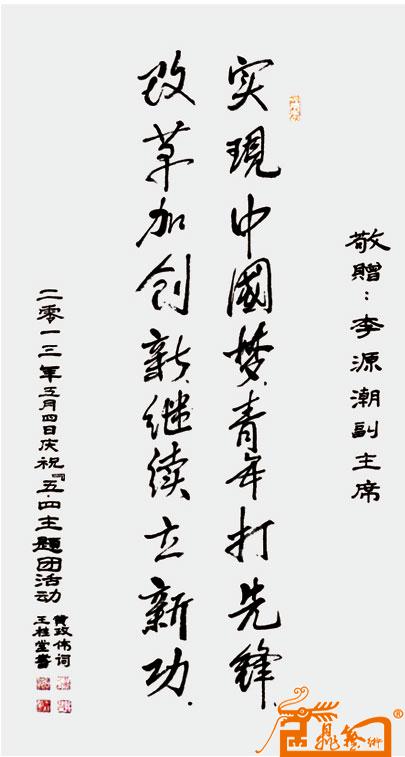 敬贈：李源潮副主席
实現中國梦，青年打先锋，
改革加创新，继续立新功．
二零一三年五月四日庆祝『五·四主题团活动
黄政伟词
王桂堂書